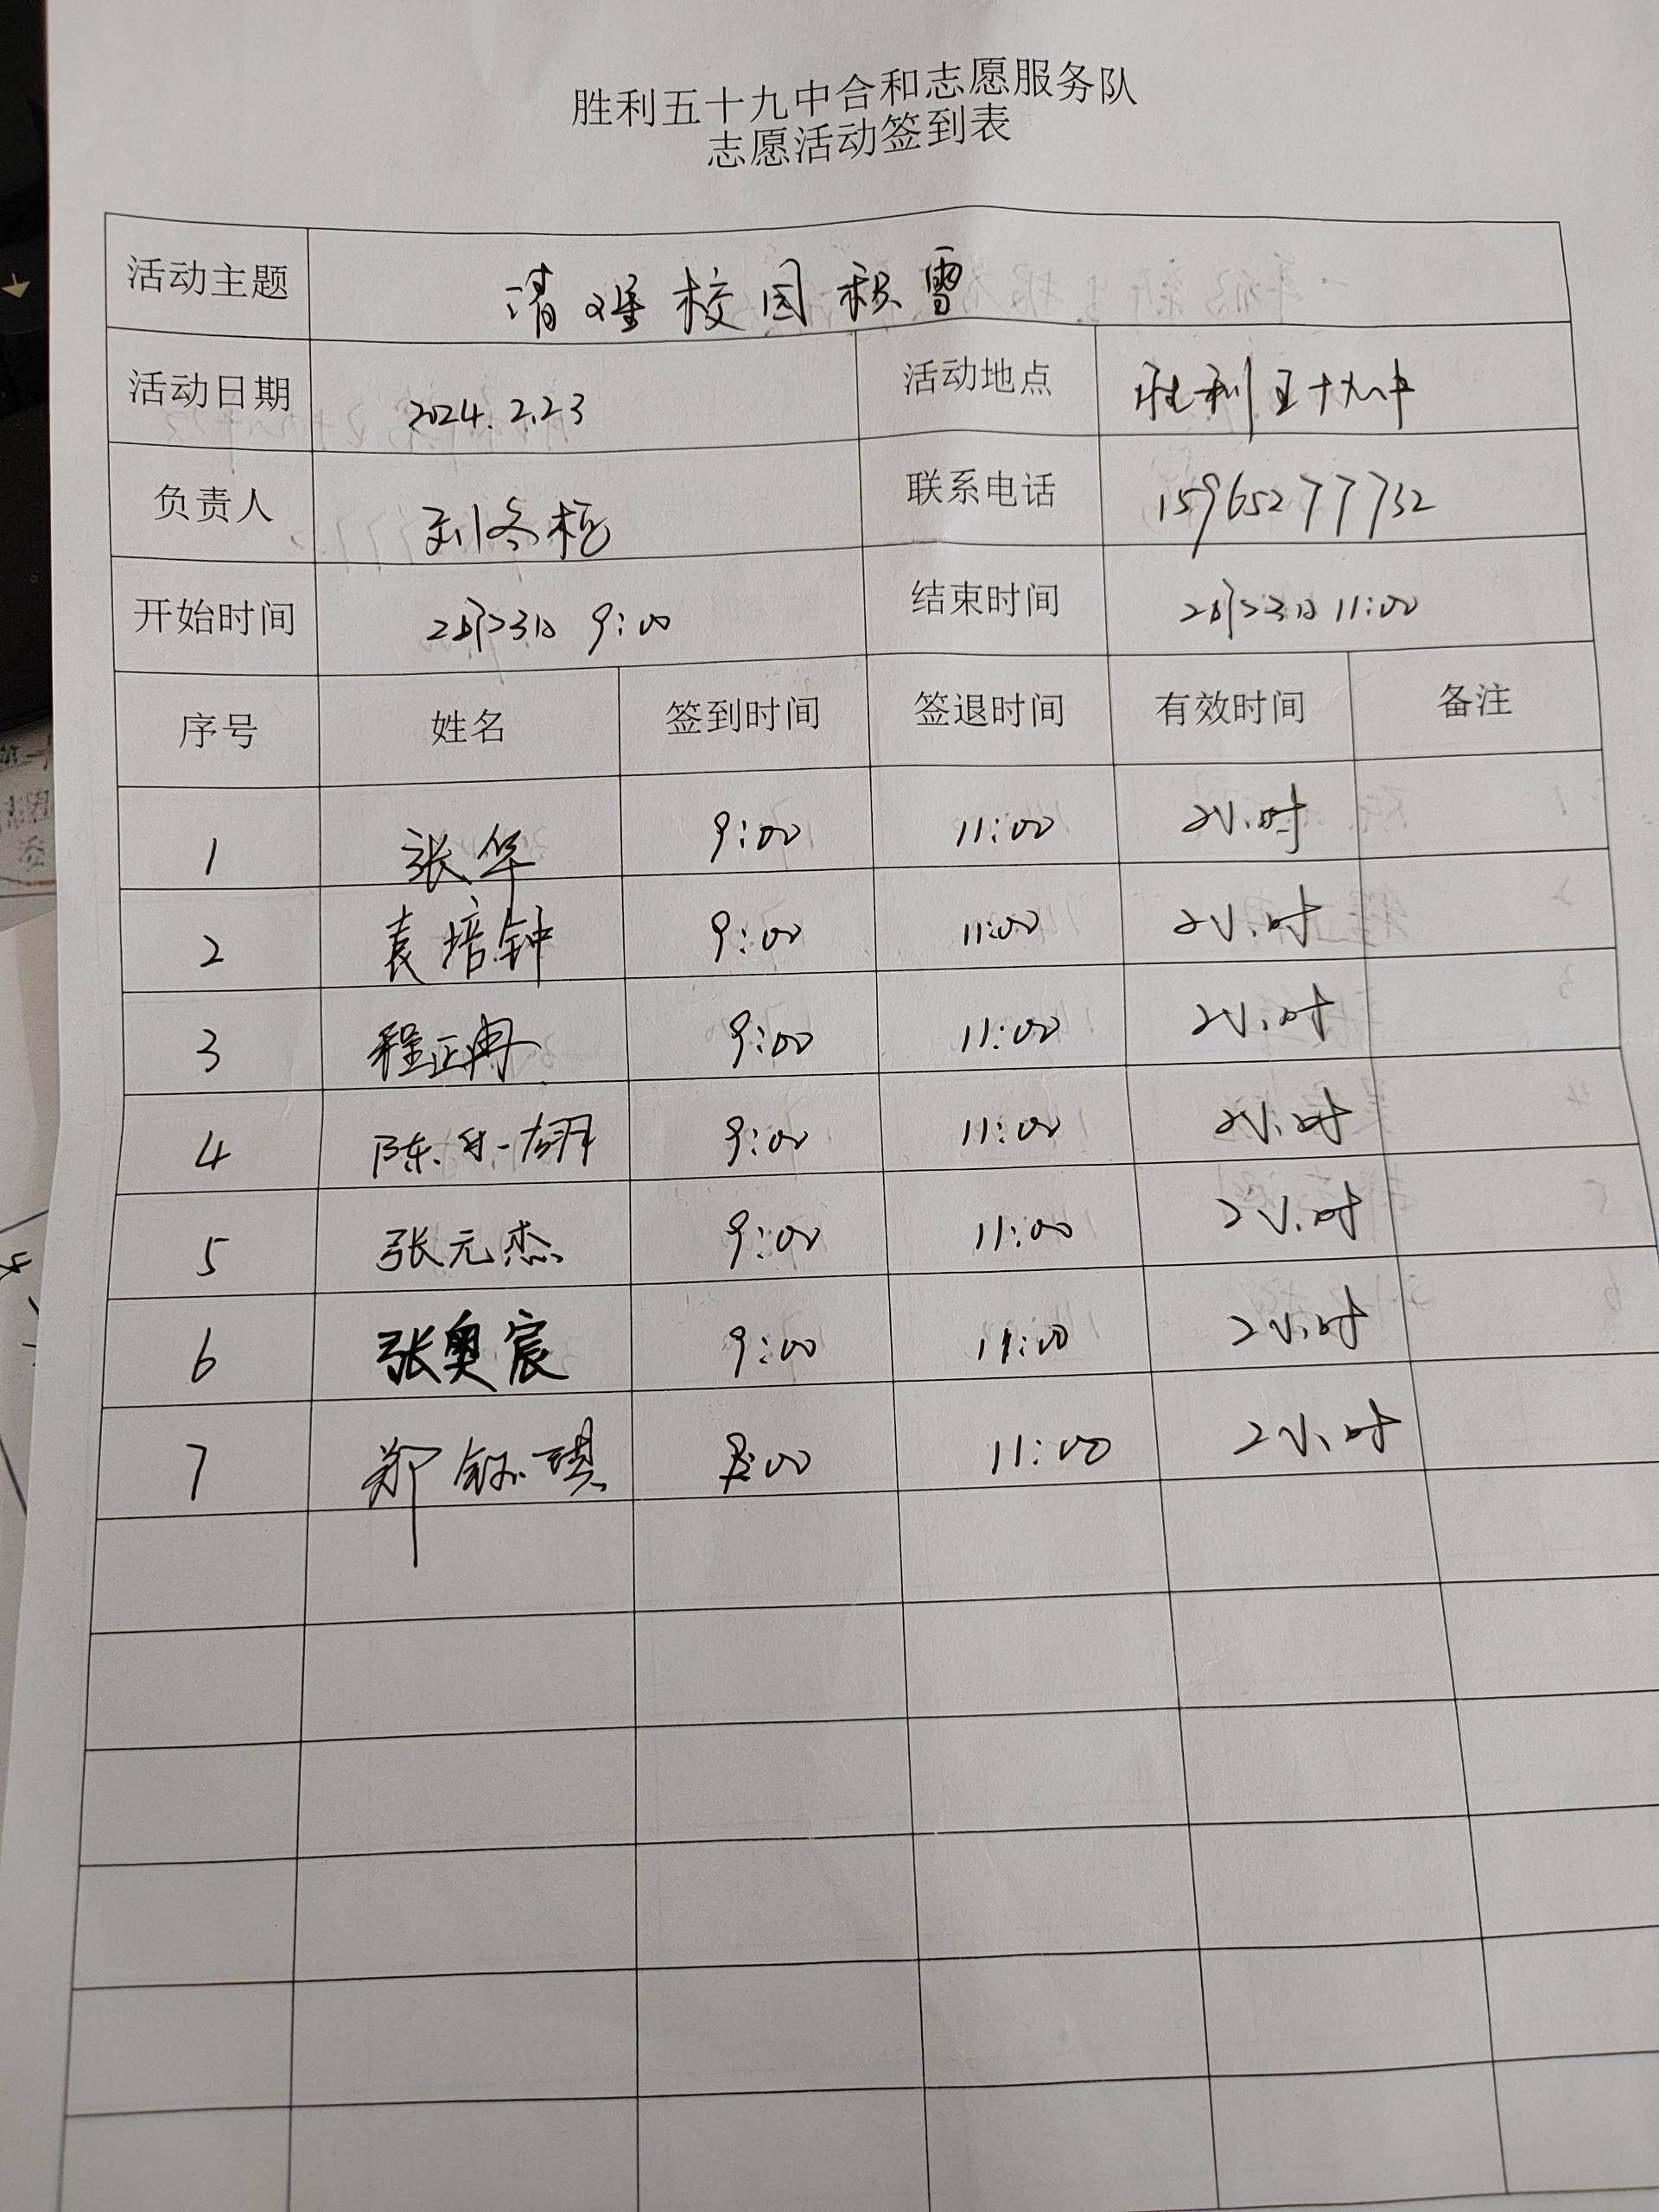 胜利五十九中合和志愿服务队
志愿活动签到表
活动主题 清理校园积雪
活动日期 2024.2.23 活动地点 胜利五十九中
负责人 刘冬梅 联系电话 15965277732
开始时间 2月23日 9:00 结束时间 2月23日 11:00
序号 姓名 签到时间 签退时间 有效时间 备注
1 张华 9:00 11:00 2小时
2 袁培钟 9:00 11:00 2小时
3 程正冉 9:00 11:00 2小时
4 陈 9:00 11:00 2小时
5 张元杰 9:00 11:00 2小时
6 张奥宸 9:00 11:00 2小时
7 郑钰琪 9:00 11:00 2小时